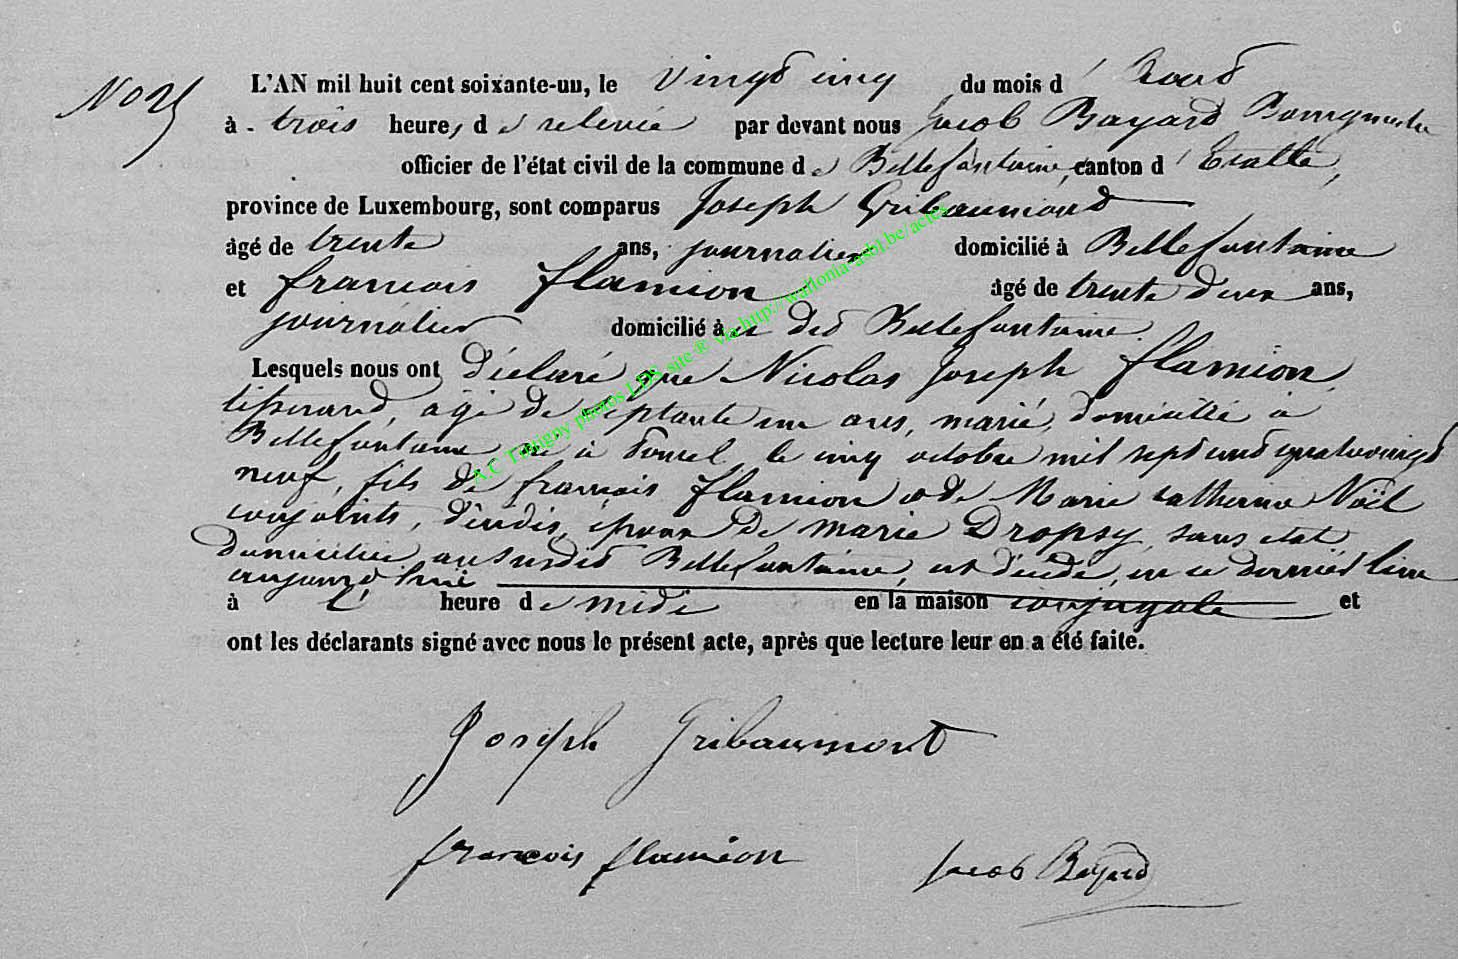 L'AN mil huit cent soixante-un, le vingt cinq du mois d' Aout
à trois heures de relevée par devant nous Jacob Bayard Bourgmestre
officier de l'état civil de la commune de Bellefontaine, canton d' Etalle,
province de Luxembourg, sont comparus Joseph Gribaumond
âgé de trente ans, journalier domicilié à Bellefontaine
et françois flamion âgé de trente deux ans,
journalier domicilié à dit Bellefontaine.
Lesquels nous ont déclaré que Nicolas Joseph flamion,
tisserand, agé de septante un ans, marié, domicilié à
Bellefontaine né à le cinq octobre mil sept cent quatrevingt
neuf, fils de françois flamion et de Marie catherine Noël
conjoints, décédés, époux de marie Dropsy, sans etat
domiciliée au susdit Bellefontaine, est décédé, en ce dernier lieu
aujourd'hui
à l' heure de midi en la maison conjugale et
ont les déclarants signé avec nous le présent acte, après que lecture leur en a été faite.
A.C Tintigny photos LDS site ® via http://wallonia-asbl.be/actes
Joseph Gribaumont
françois flamion Jacob Bayard